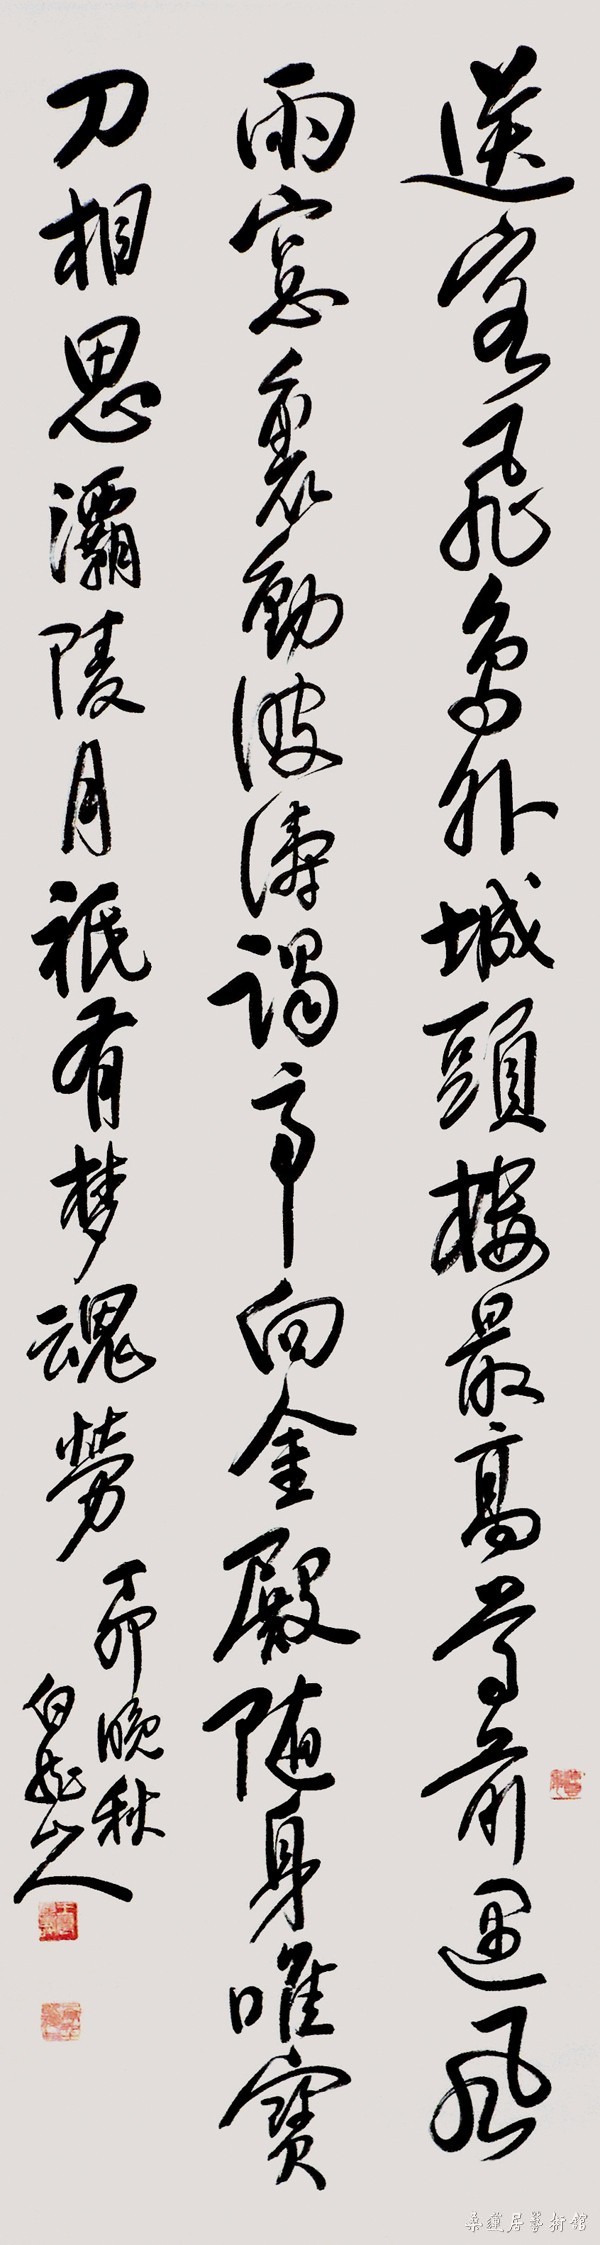 送客飛鳥外城頭樓最高尊前遇風
雨窓裏動波濤謁帝向金殿隨身唯寶
刀相思灞陵月祇有梦魂勞
丁卯晚秋
白龍山人
桑蓮居藝術館